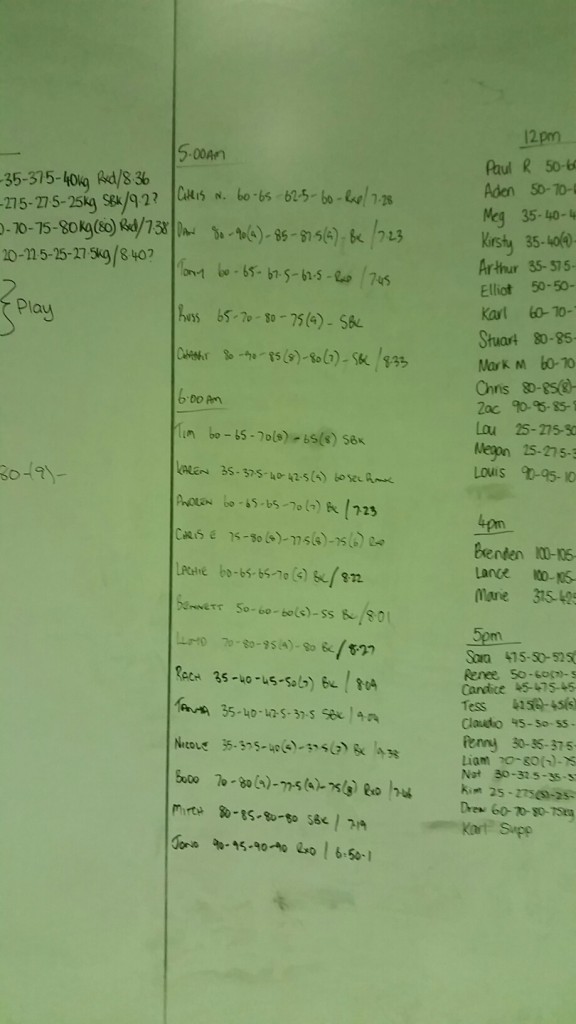 -35-37.5-40kg Rxd/8.36
-27.5-27.5-25kg SBK/9.2?
0-70-75-80kg(80) Rxd/7.38
20-22.5-25-27.5kg/8.40?
} Play
80-(9)-
5.00AM
CHRIS N. 60-65-62.5-60-RxD/7.28
DAN 80-90(9)-85-87.5(9)-BK/7.23
TONY 60-65-67.5-62.5-RxD/7.45
RUSS 65-70-80-75(9)-SBK
80-90-85(8)-80(7)-SBK/8.33
6.00AM
TIM 60-65-70(8)-65(8) SBK
KAREN 35-37.5-40-42.5(9) 60 SEC PLANK
ANDREW 60-65-65-70(7) BK/7.23
CHRIS E 75-80(8)-77.5(8)-75(6) RxD
LACHIE 60-65-65-70(9) BK/8.22
BENNETT 50-60-60(6)-55 BK/8.01
LLOYD 70-80-85(9)-80 BK/8.27
RACH 35-40-45-50(7) BK/8.09
TANYA 35-40-42.5-37.5 SBK/9.04
NICOLE 35-37.5-40(9)-37.5(7) BK/9.38
BODO 70-80(9)-77.5(9)-75(8) RxD
MITCH 80-85-80-80 SBK/7.19
JONO 90-95-90-90 RxD/6:50.1
12pm
Paul R 50-6
Aden 50-70-
Meg 35-40-4
Kirsty 35-40(9)-
Arthur 35-37.5-
Elliot 50-50-
Karl 60-70-
Stuart 80-85-
Mark M 60-70
Chris 80-85(8)-
Zac 90-95-85-
Lou 25-27.5-30
Megan 25-27.5-3
Louis 90-95-10
4pm
Brenden 100-105-
Lance 100-105-
Marie 37.5-42.5
5pm
Sara 47.5-50-52.5(
Renee 50-60(7)-5
Candice 45-47.5-45
Tess 42.5(9)-45(9)
Claudio 45-50-55-
Penny 30-35-37.5
Liam 70-80(7)-75
Nat 30-32.5-35-3
Kim 25-27.5(8)-25-
Drew 60-70-80-75kg
Karl Supp